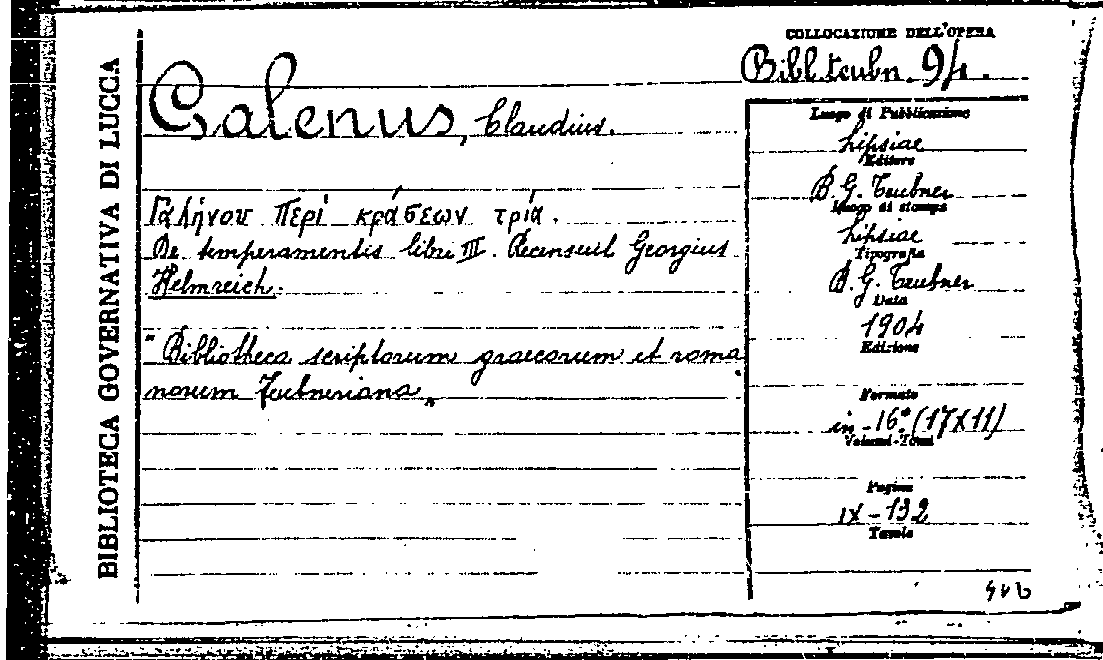 BIBLIOTECA GOVERNATIVA DI LUCCA
COLLOCAZIONE DELL'OPERA
Bibl. teubn. 94.
Galenus, Claudius.
Γαλήνου Περί κράσεων τρία.
De temperamentis libri III. Recensuit Georgius
Helmreich.
"Bibliotheca scriptorum graecorum et roma
norum Teubneriana„
Luogo di Pubblicazione
Lipsiae
Editore
B. G. Teubner
Luogo di stampa
Lipsiae
Tipografia
B. G. Teubner
Data
1904
Edizione
Formato
in-16° (17X11)
Volumi-Tomi
Pagine
IX-132
Tavole